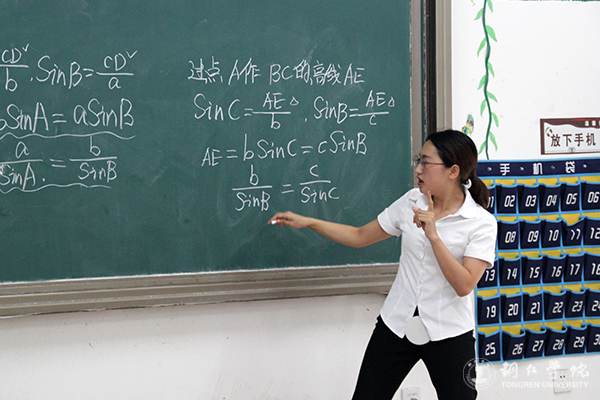 CD✓/b , SinB = CD✓/a
bSinA = aSinB
a/SinA = b/SinB
过点 A作 BC的高线 AE
SinC = AE△/b , SinB = AE△/c
AE = bSinC = cSinB
b/SinB = c/SinC
放下手机
手机袋
02 03 04 05 06
08 09 10 11 12
13 14 15 16 17 18
19 20 21 22 23 24
25 26 27 28 29 30
铜仁学院
TONGREN UNIVERSITY